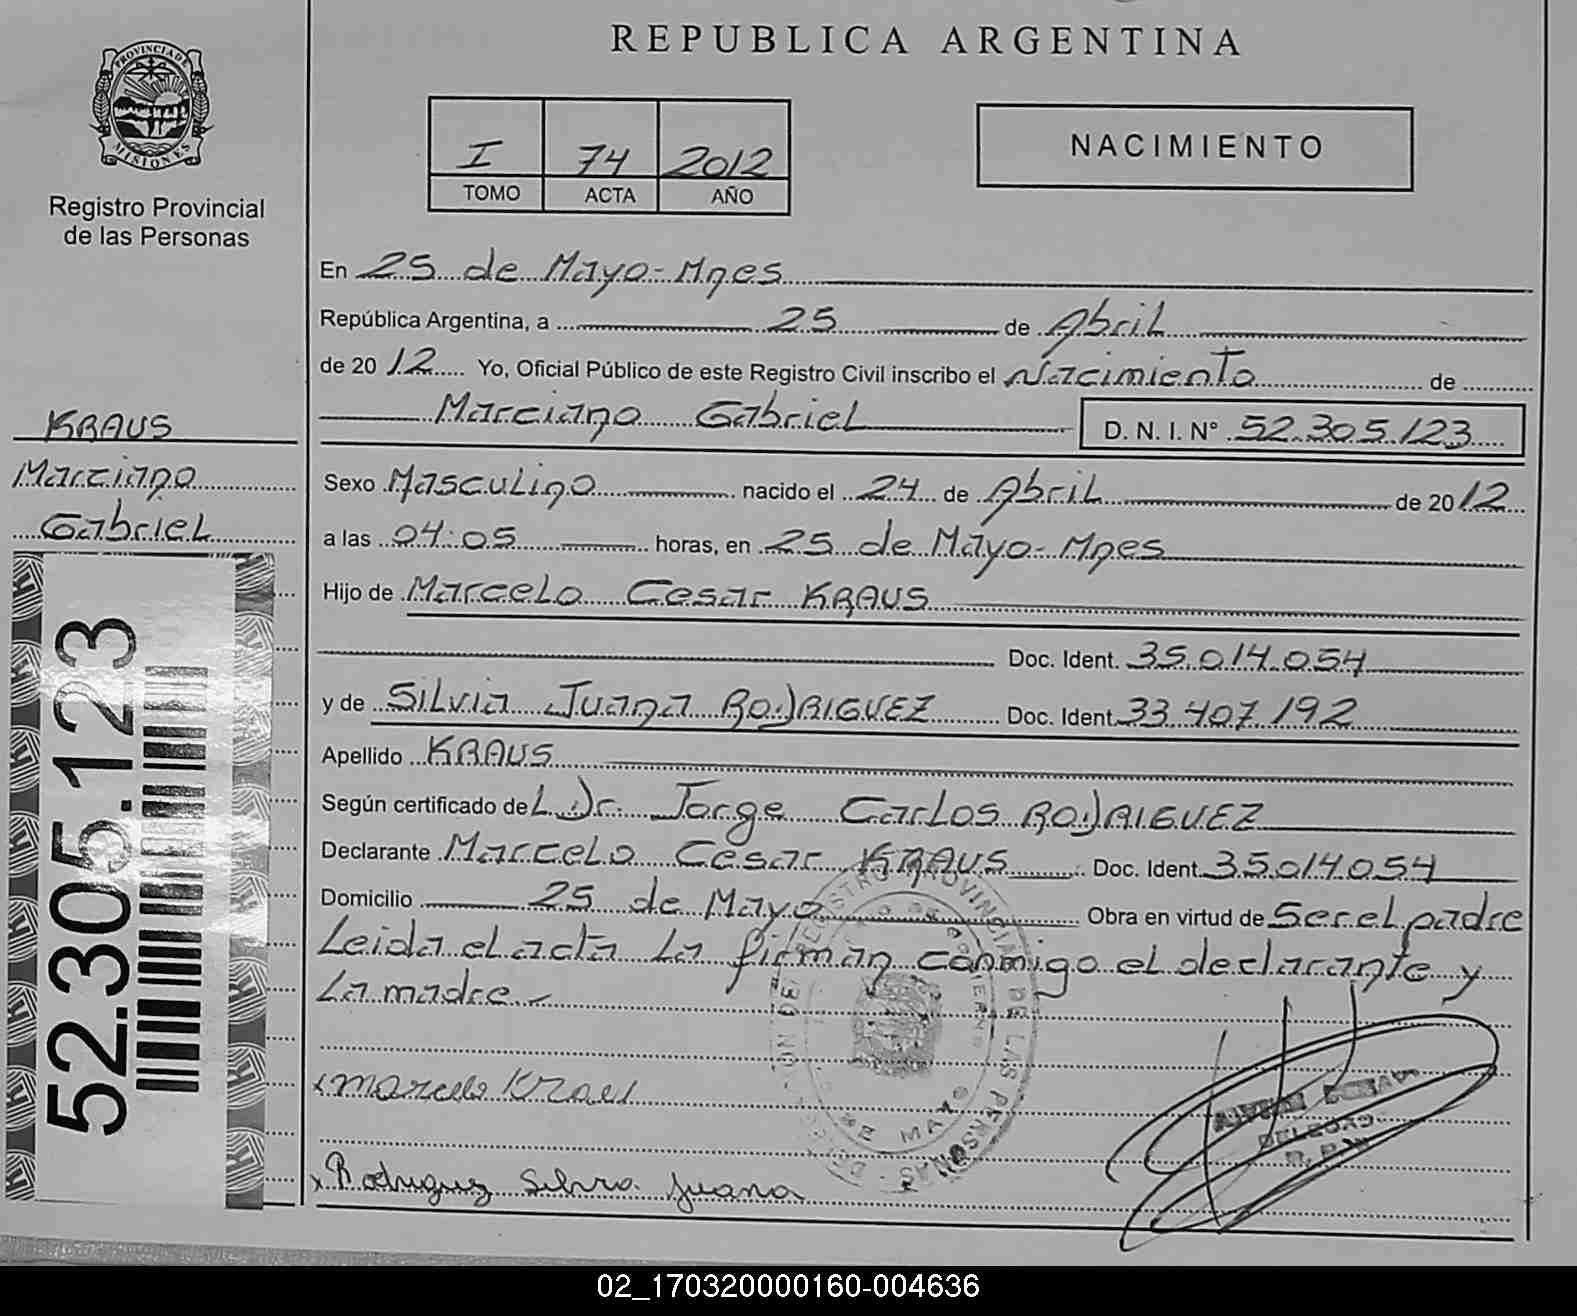 REPUBLICA ARGENTINA
PROVINCIA DE
MISIONES
Registro Provincial
de las Personas
I 74 2012
TOMO ACTA AÑO
NACIMIENTO
En 25 de Mayo-Mnes
República Argentina, a 25 de Abril
de 2012 Yo, Oficial Público de este Registro Civil inscribo el Nacimiento de
Marciano Gabriel D. N. I. N° 52.305.123
KRAUS
Marciano
Gabriel
52.305.123
Sexo Masculino nacido el 24 de Abril de 2012
a las 04:05 horas, en 25 de Mayo-Mnes
Hijo de Marcelo Cesar KRAUS
Doc. Ident. 35.014.054
y de Silvia Juana RODRIGUEZ Doc. Ident. 33.407.192
Apellido KRAUS
Según certificado de L Dr. Jorge Carlos RODRIGUEZ
Declarante Marcelo Cesar KRAUS Doc. Ident. 35.014.054
Domicilio 25 de Mayo Obra en virtud de Ser el padre
Leida el acta la firman conmigo el declarante y
La madre-
x Marcelo Kraus
x Rodriguez Silvia Juana
REGISTRO PROVINCIAL DE LAS PERSONAS
DE MAYO
02_170320000160-004636